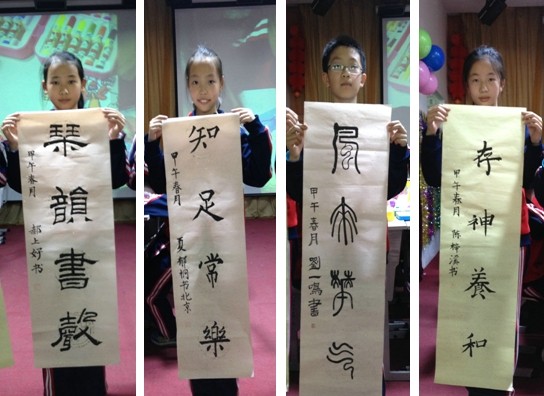 琹韻書聲
甲午春月
郝上好书
知足常樂
甲午春月
夏郁炯书北京
風華
甲午春月 劉一鳴書
存神養和
甲午春月
书